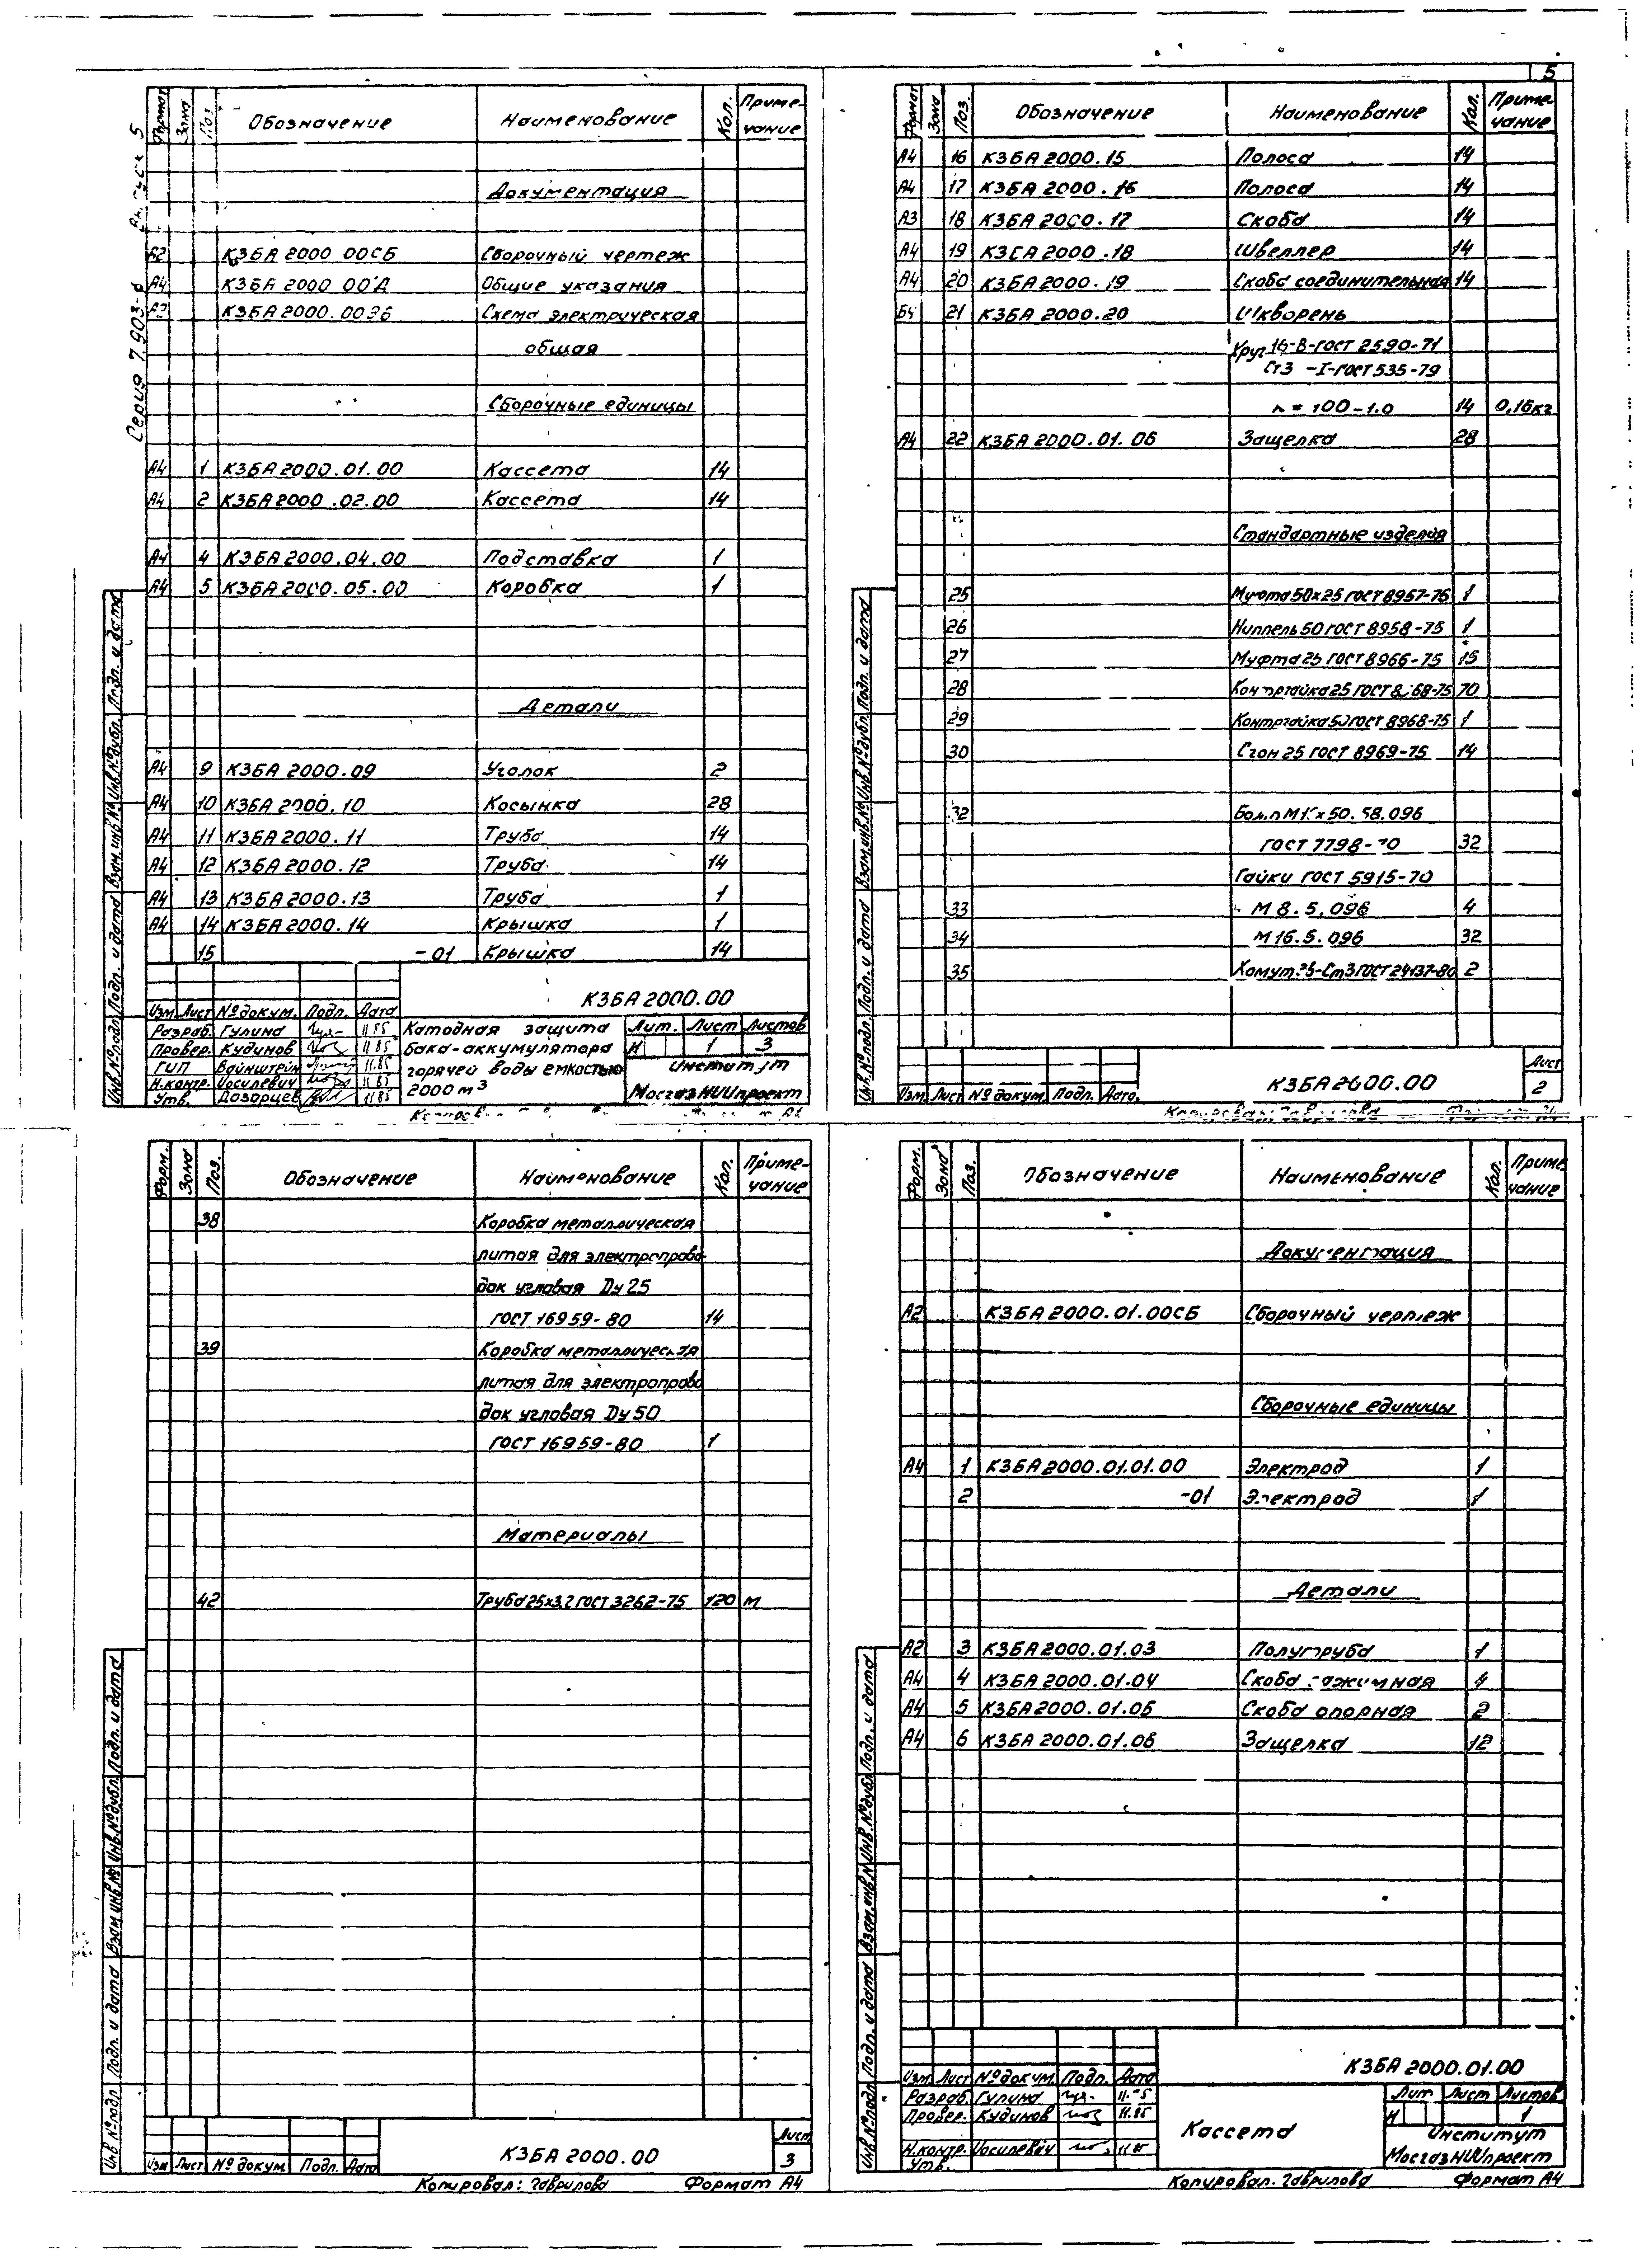 5
Серия 7.903-
Формат Зона Поз. Обозначение Наименование Кол. Приме-чание
Документация
КЗБА 2000 00СБ Сборочный чертеж
А4 КЗБА 2000 00Д Общие указания
КЗБА 2000.00Э6 Схема электрическая
общая
Сборочные единицы
А4 1 КЗБА 2000.01.00 Кассета 14
А4 2 КЗБА 2000.02.00 Кассета 14
А4 4 КЗБА 2000.04.00 Подставка 1
А4 5 КЗБА 2000.05.00 Коробка 1
Детали
А4 9 КЗБА 2000.09 Уголок 2
А4 10 КЗБА 2000.10 Косынка 28
А4 11 КЗБА 2000.11 Труба 14
А4 12 КЗБА 2000.12 Труба 14
А4 13 КЗБА 2000.13 Труба 1
А4 14 КЗБА 2000.14 Крышка 1
15 -01 Крышка 14
КЗБА 2000.00
Изм Лист № докум. Подп. Дата
Разраб. Гулина 11.85
Провер. Кудинов 11.85
ГИП Вайнштейн 11.85
Н.контр. Иосилевич 11.85
Утв. Дозорцев 11.85
Катодная защита
бака-аккумулятора
горячей воды емкостью
2000 м³
Лит. Лист Листов
И 1 3
Институт
МосгазНИИпроект
Инв.№подл. Подп. и дата Взам.инв.№ Инв.№дубл. Подп. и дата
Формат Зона Поз. Обозначение Наименование Кол. Приме-чание
А4 16 КЗБА 2000.15 Полоса 14
А4 17 КЗБА 2000.16 Полоса 14
А3 18 КЗБА 2000.17 Скоба 14
А4 19 КЗБА 2000.18 Швеллер 14
А4 20 КЗБА 2000.19 Скоба соединительная 14
Б4 21 КЗБА 2000.20 Шкворень
Круг 16-В-ГОСТ 2590-71
Ст3 -I-ГОСТ 535-79
= 100-1.0 14 0,16кг
А4 22 КЗБА 2000.01.06 Защелка 28
Стандартные изделия
25 Муфта 50×25 ГОСТ 8957-75 1
26 Ниппель 50 ГОСТ 8958-75 1
27 Муфта 25 ГОСТ 8966-75 15
28 Контргайка 25 ГОСТ 8968-75 70
29 Контргайка 50 ГОСТ 8968-75 1
30 Сгон 25 ГОСТ 8969-75 14
32 Болт М16×50.58.096
ГОСТ 7798-70 32
Гайки ГОСТ 5915-70
33 М 8.5.096 4
34 М 16.5.096 32
35 Хомут ГОСТ 24137-80 2
КЗБА 2000.00
Лист
2
Изм. Лист № докум. Подп. Дата
Копировал: Гаврилова
Инв.№подл. Подп. и дата Взам.инв.№ Инв.№дубл. Подп. и дата
Форм. Зона Поз. Обозначение Наименование Кол. Приме-чание
38 Коробка металлическая
литая для электропрово
док угловая Ду 25
ГОСТ 16959-80 14
39 Коробка металлическая
литая для электропрово
док угловая Ду 50
ГОСТ 16959-80 1
Материалы
42 Труба 25×3,2 ГОСТ 3262-75 120 м
КЗБА 2000.00
Лист
3
Изм Лист № докум. Подп. Дата
Копировал: Гаврилова Формат А4
Инв №подл Подп. и дата Взам инв.№ Инв.№дубл. Подп. и дата
Форм. Зона Поз. Обозначение Наименование Кол. Приме чание
Документация
А2 КЗБА 2000.01.00СБ Сборочный чертеж
Сборочные единицы
А4 1 КЗБА 2000.01.01.00 Электрод 1
2 -01 Электрод 1
Детали
А2 3 КЗБА 2000.01.03 Полутруба 1
А4 4 КЗБА 2000.01.04 Скоба
А4 5 КЗБА 2000.01.05 Скоба опорная 2
А4 6 КЗБА 2000.01.06 Защелка 12
КЗБА 2000.01.00
Изм. Лист № докум. Подп. Дата
Разраб Гулина 11.85
Провер. Кудинов 11.85
Н.контр. Иосилевич 11.85
Утв.
Кассета
Лит Лист Листов
И 1
Институт
МосгазНИИпроект
Копировал. Гаврилова Формат А4
Инв.№подл Подп. и дата Взам.инв.№ Инв.№дубл. Подп. и дата